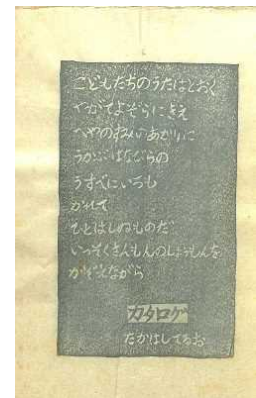 こどもたちのうたはとおく
やがてよぞらにきえ
へやのすみのあかりに
うかぶはなびらの
うすべにいろも
かれて
ひとはしぬものだ
いっそくさんもんのしょうしんを
かぞえながら
カタログ
たかはしてるお